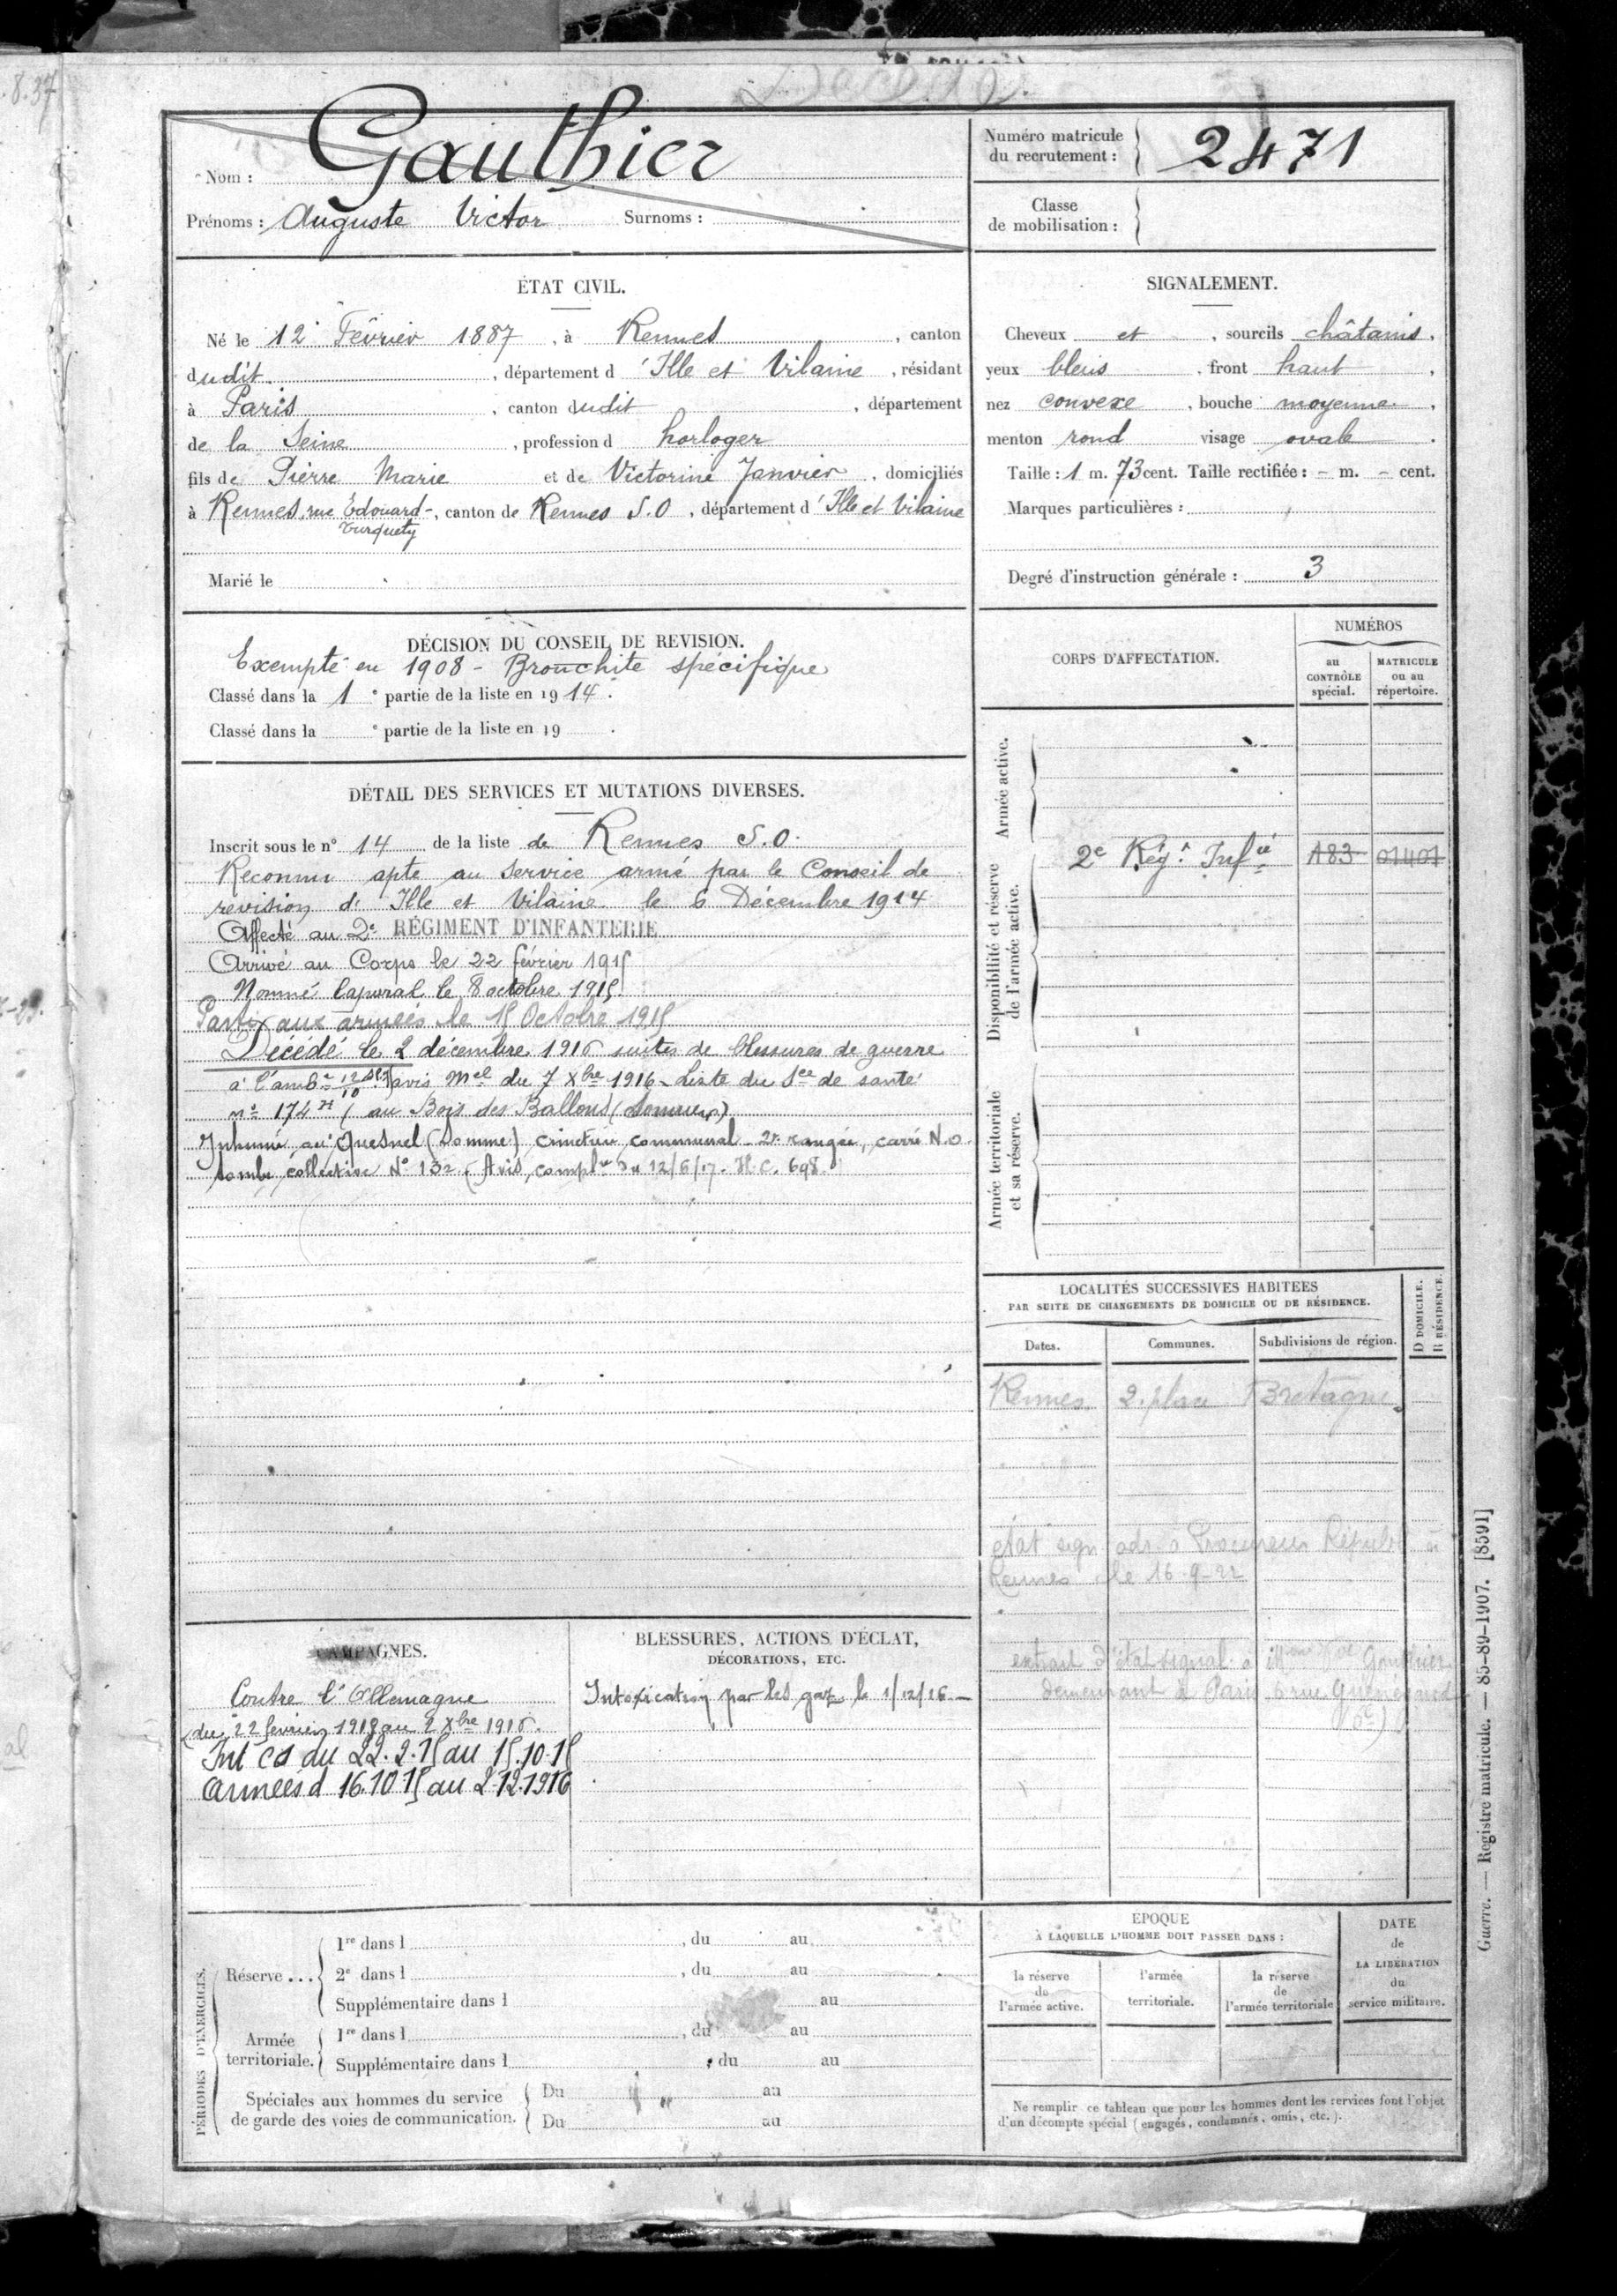 Décédé
Nom : Gauthier
Prénoms : Auguste Victor Surnoms :
Numéro matricule du recrutement : 2471
Classe de mobilisation :
ÉTAT CIVIL.
Né le 12 Février 1887, à Rennes, canton
dudit, département d'Ille et Vilaine, résidant
à Paris, canton dudit, département
de la Seine, profession d horloger
fils de Pierre Marie et de Victorine Janvier, domiciliés
à Rennes, rue Edouard-, canton de Rennes S.O, département d'Ille et Vilaine
Turquety
Marié le
SIGNALEMENT.
Cheveux et, sourcils châtains,
yeux bleus, front haut,
nez convexe, bouche moyenne,
menton rond visage ovale.
Taille : 1 m. 73 cent. Taille rectifiée : - m. - cent.
Marques particulières :
Degré d'instruction générale : 3
DÉCISION DU CONSEIL DE REVISION.
Exempté en 1908 - Bronchite spécifique
Classé dans la 1e partie de la liste en 1914.
Classé dans la e partie de la liste en 19 .
DÉTAIL DES SERVICES ET MUTATIONS DIVERSES.
Inscrit sous le n° 14 de la liste de Rennes S.O.
Reconnu apte au service armé par le Conseil de
revision d'Ille et Vilaine le 6 Décembre 1914
Affecté au 2e RÉGIMENT D'INFANTERIE
Arrivé au Corps le 22 février 1915
Nommé Caporal le 8 octobre 1915.
Parti aux armées le 15 Octobre 1915
Décédé le 2 décembre 1916 suites de blessures de guerre
à l'ambce 12/10 avis Mel du 7 Xbre 1916 - Liste du Sce de santé
no 174 H (au Bois des Ballons (Somme)
Inhumé au Quesnel (Somme) cimetière communal - 2e rangée, carré N.O.
tombe collective N° 132 (Avis compl. du 12/6/17. H.C. 698.
CORPS D'AFFECTATION.
NUMÉROS
au CONTRÔLE spécial.
MATRICULE ou au répertoire.
Armée active.
Disponibilité et réserve de l'armée active.
2e Régt Infie 183 01401
Armée territoriale et sa réserve.
LOCALITÉS SUCCESSIVES HABITEES
PAR SUITE DE CHANGEMENTS DE DOMICILE OU DE RÉSIDENCE.
Dates.
Communes.
Subdivisions de région.
D DOMICILE.
R RÉSIDENCE.
Rennes 2. place Bretagne
état sign adr. à Procureur Républ à
Rennes le 16-9-22
extrait d'état signal. à Gauthier
demeurant à Paris 6 rue Guénégaud
(6e)
CAMPAGNES.
Contre l'Allemagne
du 22 février 1915 au 2 Xbre 1916.
Int CS du 22.2.15 au 15.10.15
Armées d 16.10.15 au 2.12.1916
BLESSURES, ACTIONS D'ÉCLAT,
DÉCORATIONS, ETC.
Intoxication par les gaz le 1/12/16 -
PÉRIODES D'EXERCICES.
Réserve ...
1re dans l , du au
2e dans l , du au
Supplémentaire dans l au
Armée territoriale.
1re dans l , du au
Supplémentaire dans l , du au
Spéciales aux hommes du service
de garde des voies de communication.
Du au
Du au
EPOQUE
À LAQUELLE L'HOMME DOIT PASSER DANS :
la réserve de l'armée active.
l'armée territoriale.
la réserve de l'armée territoriale
DATE de LA LIBÉRATION du service militaire.
Ne remplir ce tableau que pour les hommes dont les services font l'objet
d'un décompte spécial (engagés, condamnés, omis, etc.).
Guerre. — Registre matricule. — 85-89-1907. [8591]